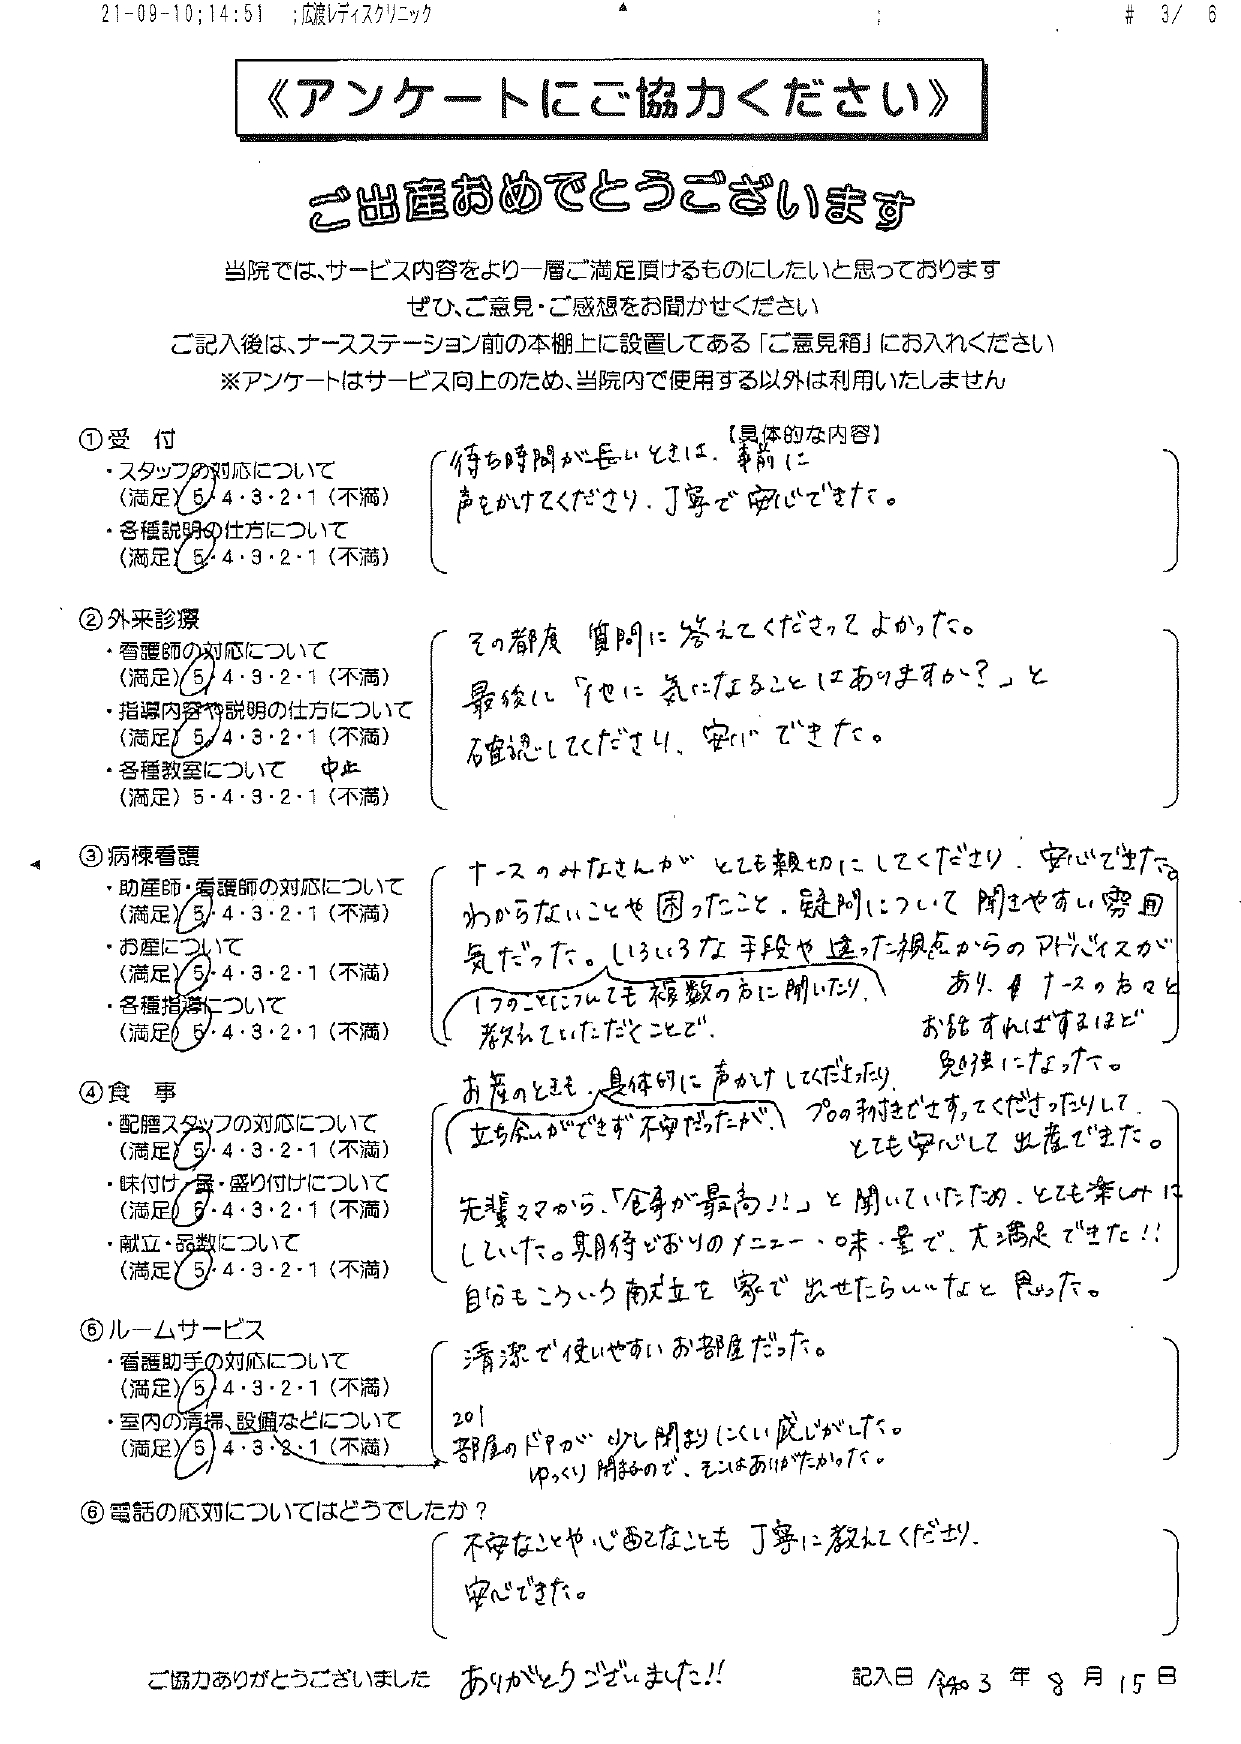 21-09-10;14:51 ;広渡レディスクリニック ; # 3/ 6
《アンケートにご協力ください》
ご出産おめでとうございます
当院では、サービス内容をより一層ご満足頂けるものにしたいと思っております
ぜひ、ご意見・ご感想をお聞かせください
ご記入後は、ナースステーション前の本棚上に設置してある「ご意見箱」にお入れください
※アンケートはサービス向上のため、当院内で使用する以外は利用いたしません
①受 付
【具体的な内容】
・スタッフの対応について
(満足) 5・4・3・2・1 (不満)
・各種説明の仕方について
(満足) 5・4・3・2・1 (不満)
待ち時間が長いときは、事前に
声をかけてくださり、丁寧で安心できた。
②外来診療
・看護師の対応について
(満足) 5・4・3・2・1 (不満)
・指導内容や説明の仕方について
(満足) 5・4・3・2・1 (不満)
・各種教室について 中止
(満足) 5・4・3・2・1 (不満)
その都度 質問に答えてくださってよかった。
最後に「他に気になることはありますか?」と
確認してくださり、安心できた。
③病棟看護
・助産師・看護師の対応について
(満足) 5・4・3・2・1 (不満)
・お産について
(満足) 5・4・3・2・1 (不満)
・各種指導について
(満足) 5・4・3・2・1 (不満)
ナースのみなさんがとても親切にしてくださり、安心できた。
わからないことや困ったこと、疑問について聞きやすい雰囲
気だった。いろいろな手段や違った視点からのアドバイスが
1つのことについても複数の方に聞いたり、
教えていただくことで、
あり、ナースの方々と
お話すればするほど
勉強になった。
お産のときも、具体的に声かけしてくださったり、
立ち会いができず不安だったが、
プロの手付きでさすってくださったりして、
とても安心して出産できた。
④食 事
・配膳スタッフの対応について
(満足) 5・4・3・2・1 (不満)
・味付け・量・盛り付けについて
(満足) 5・4・3・2・1 (不満)
・献立・品数について
(満足) 5・4・3・2・1 (不満)
先輩ママから、「食事が最高!!」と聞いていたため、とても楽しみに
していた。期待どおりのメニュー・味・量で、大満足できた!!
自分もこういう献立を家で出せたらいいなと思った。
⑤ルームサービス
・看護助手の対応について
(満足) 5・4・3・2・1 (不満)
・室内の清掃、設備などについて
(満足) 5・4・3・2・1 (不満)
清潔で使いやすいお部屋だった。
201
部屋のドアが少し閉まりにくい感じがした。
ゆっくり閉まるので、そこはありがたかった。
⑥電話の応対についてはどうでしたか?
不安なことや心配なことも丁寧に教えてくださり、
安心できた。
ご協力ありがとうございました ありがとうございました!!
記入日 令和3年8月15日